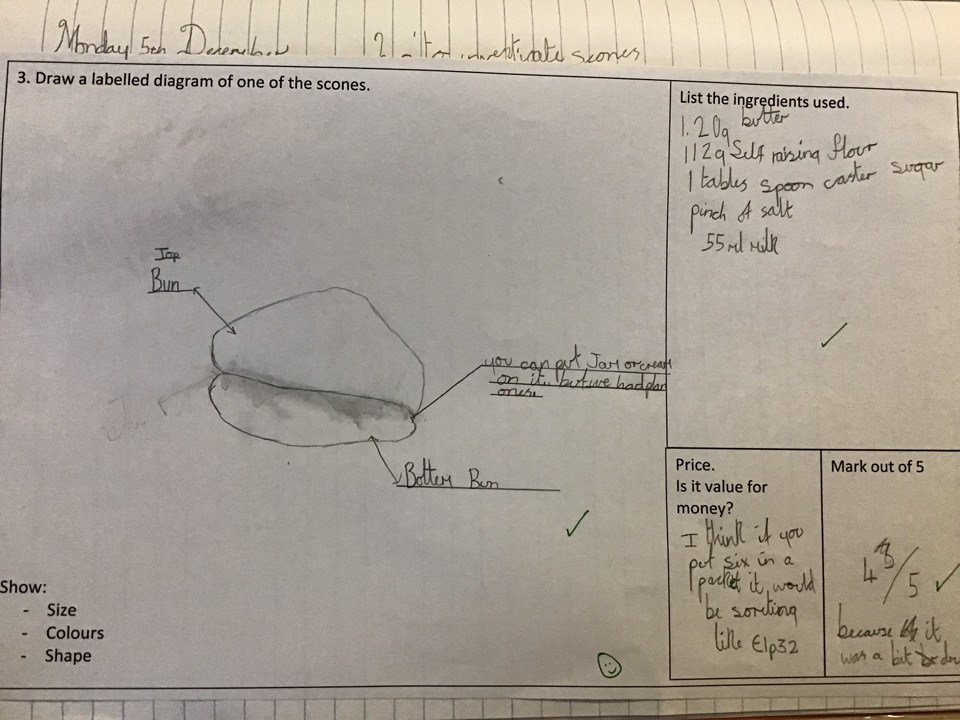 Monday 5th December
investivate scones
3. Draw a labelled diagram of one of the scones.
Top
Bun
you can put Jam or cream
on it, but we had plan
ones
Bottem Bun
Show:
- Size
- Colours
- Shape
List the ingredients used.
1.20g butter
112g Self raising flour
1 tables spoon caster sugar
pinch of salt
55ml milk
Price.
Is it value for
money?
I think if you
put six in a
packet it would
be
like £1p32
Mark out of 5
4 /5
because it
was a bit